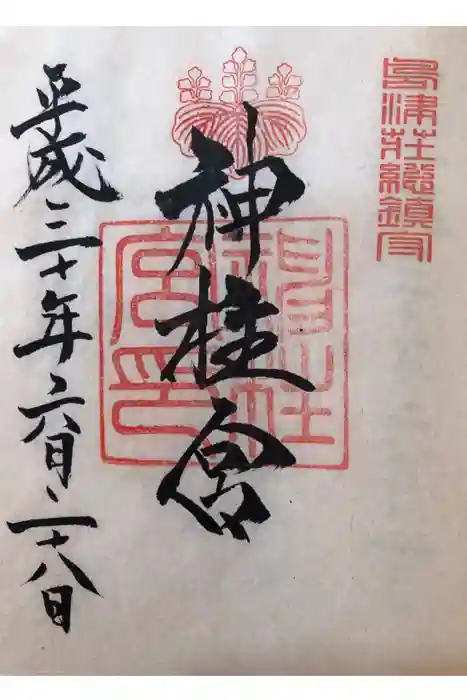 島津荘総鎮守
神柱宮
平成三十年六月二十八日